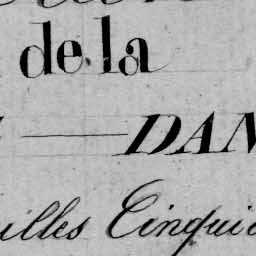 de la
— DAN
illes Cinqui